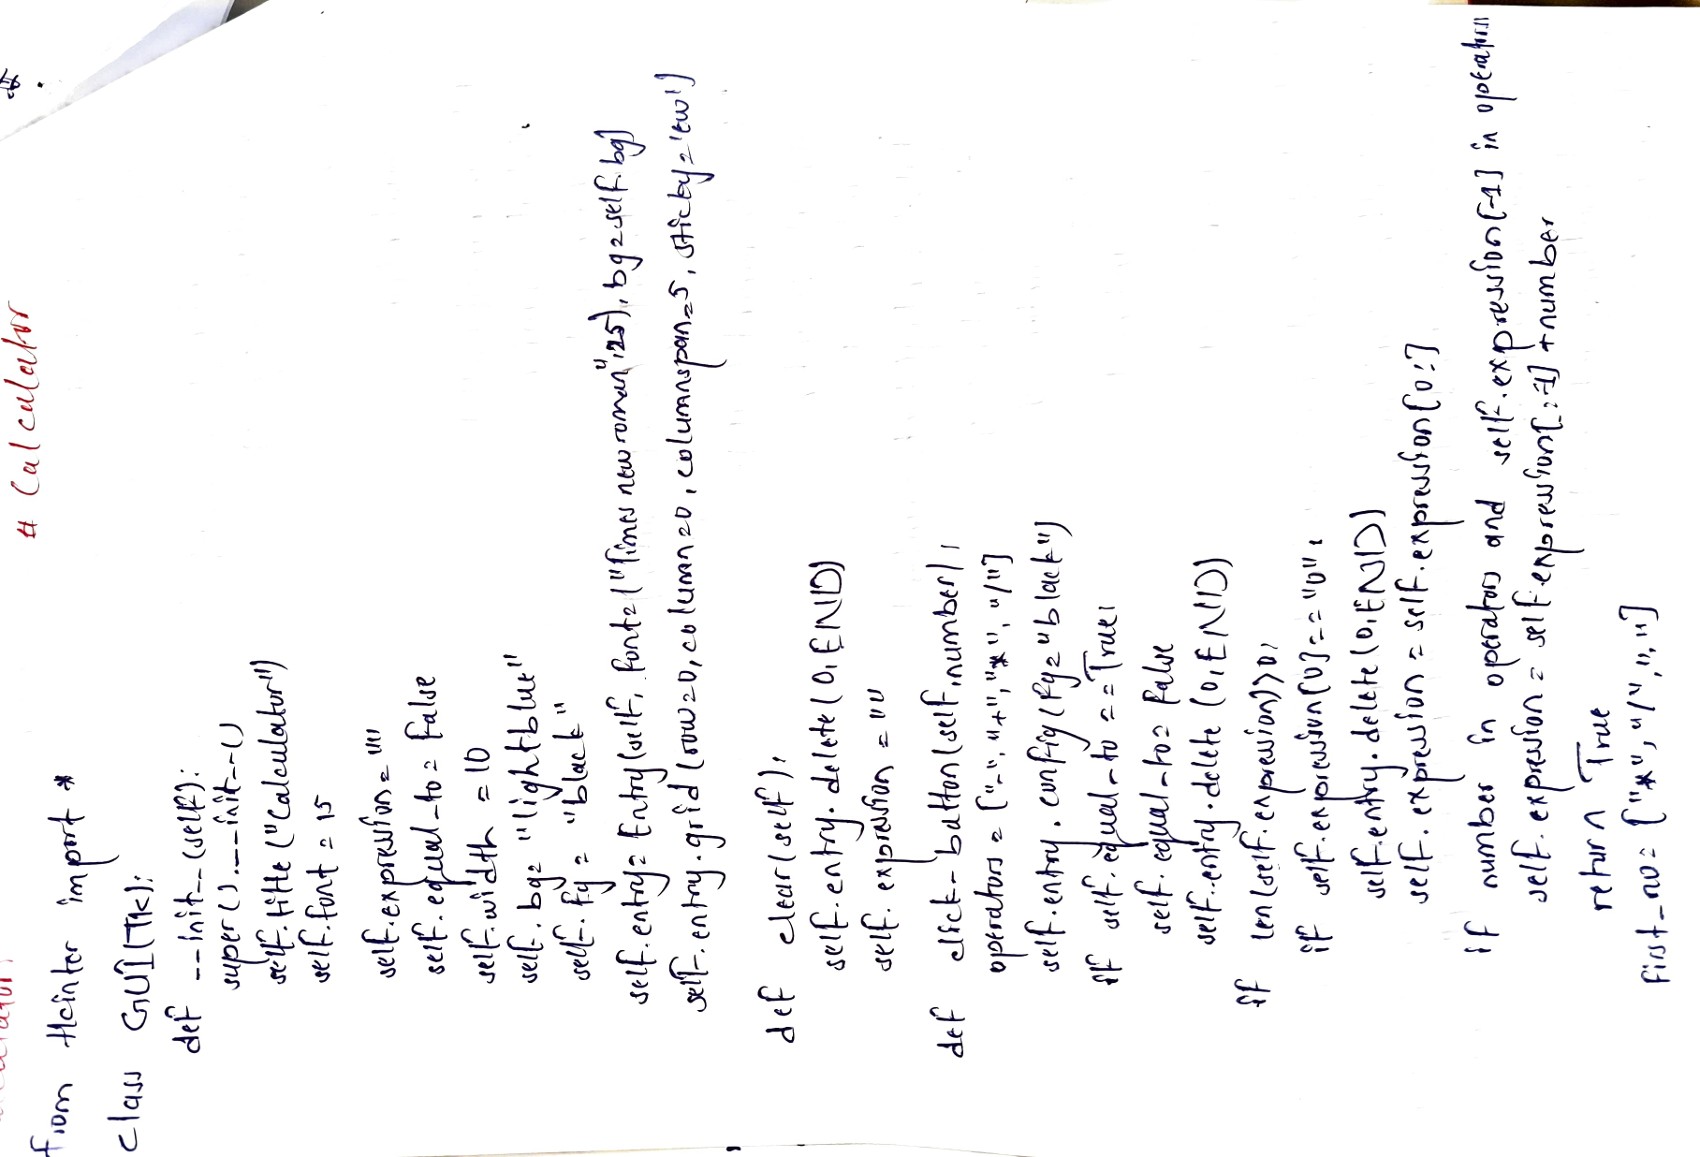 # Calculator
from tkinter import *
class GUI(Tk):
def __init__(self):
super().__init__()
self.title("Calculator")
self.font = 15
self.expression = ""
self.equal_to = False
self.width = 10
self.bg = "lightblue"
self.fg = "black"
self.entry = Entry(self, font=("Times new roman", 25), bg=self.bg)
self.entry.grid(row=0, column=0, columnspan=5, sticky='ew')
def clear(self):
self.entry.delete(0, END)
self.expression = ""
def click-button(self, number):
operators = ["-", "+", "*", "/"]
self.entry.config(fg="black")
if self.equal_to == True:
self.equal_to = False
self.entry.delete(0, END)
if len(self.expression)>0:
if self.expression[0]=="0":
self.entry.delete(0, END)
self.expression = self.expression[0:]
if number in operators and self.expression[-1] in operators
self.expression = self.expression[:-1] + number
return True
first_no = ["*", "/", "."]